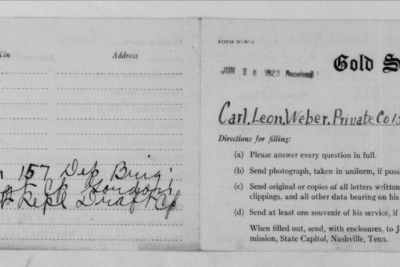 Kin Address
157 Dep Brig;
Repl Draft
FORM W-W-1
JUN 28 1923 Received
Gold S
Carl. Leon. Weber. Private Co
Directions for filling:
(a) Please answer every question in full.
(b) Send photograph, taken in uniform, if poss
(c) Send original or copies of all letters written
clippings, and all other data bearing on his
(d) Send at least one souvenir of his service, if
When filled out, send, with enclosures, to J
mission, State Capitol, Nashville, Tenn.